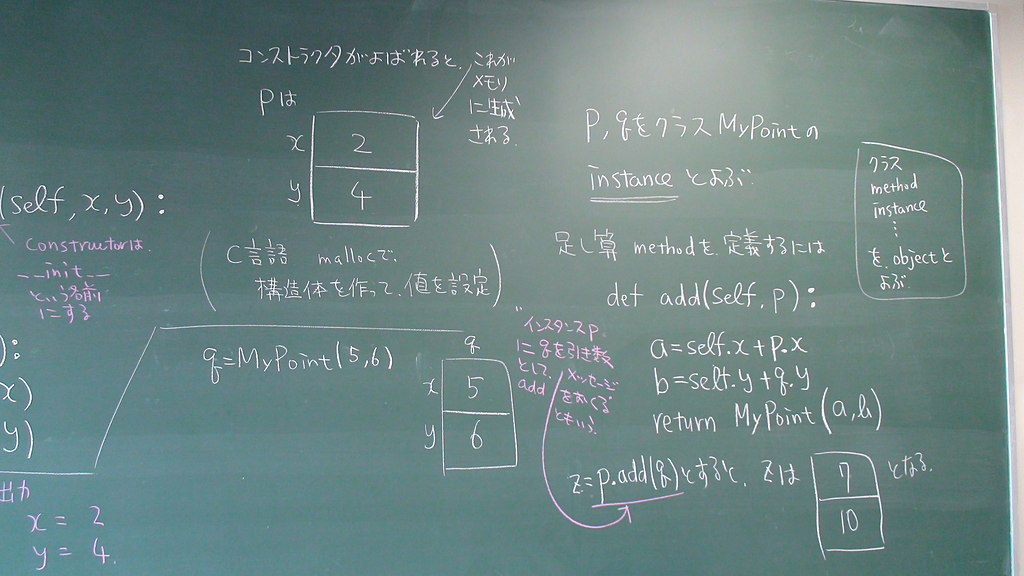 コンストラクタがよばれると、
これが
メモリ
に生成
される.
Pは
x 2
y 4
(self, x, y):
Constructorは.
__init__
という名前
にする
(C言語 mallocで
構造体を作って、値を設定)
):
x)
y)
出力
x = 2
y = 4.
q=MyPoint(5,6)
q
x 5
y 6
P, qをクラスMyPointの
instance とよぶ.
足し算 methodを定義するには
def add(self, p):
a=self.x+p.x
b=self.y+q.y
return MyPoint(a,b)
"インスタンスp
にqを引き数
として、
add メッセージ
をおくる
ともいう.
z=p.add(q)とすると、zは
7
10
となる.
クラス
method
instance
⋮
を、objectと
よぶ.